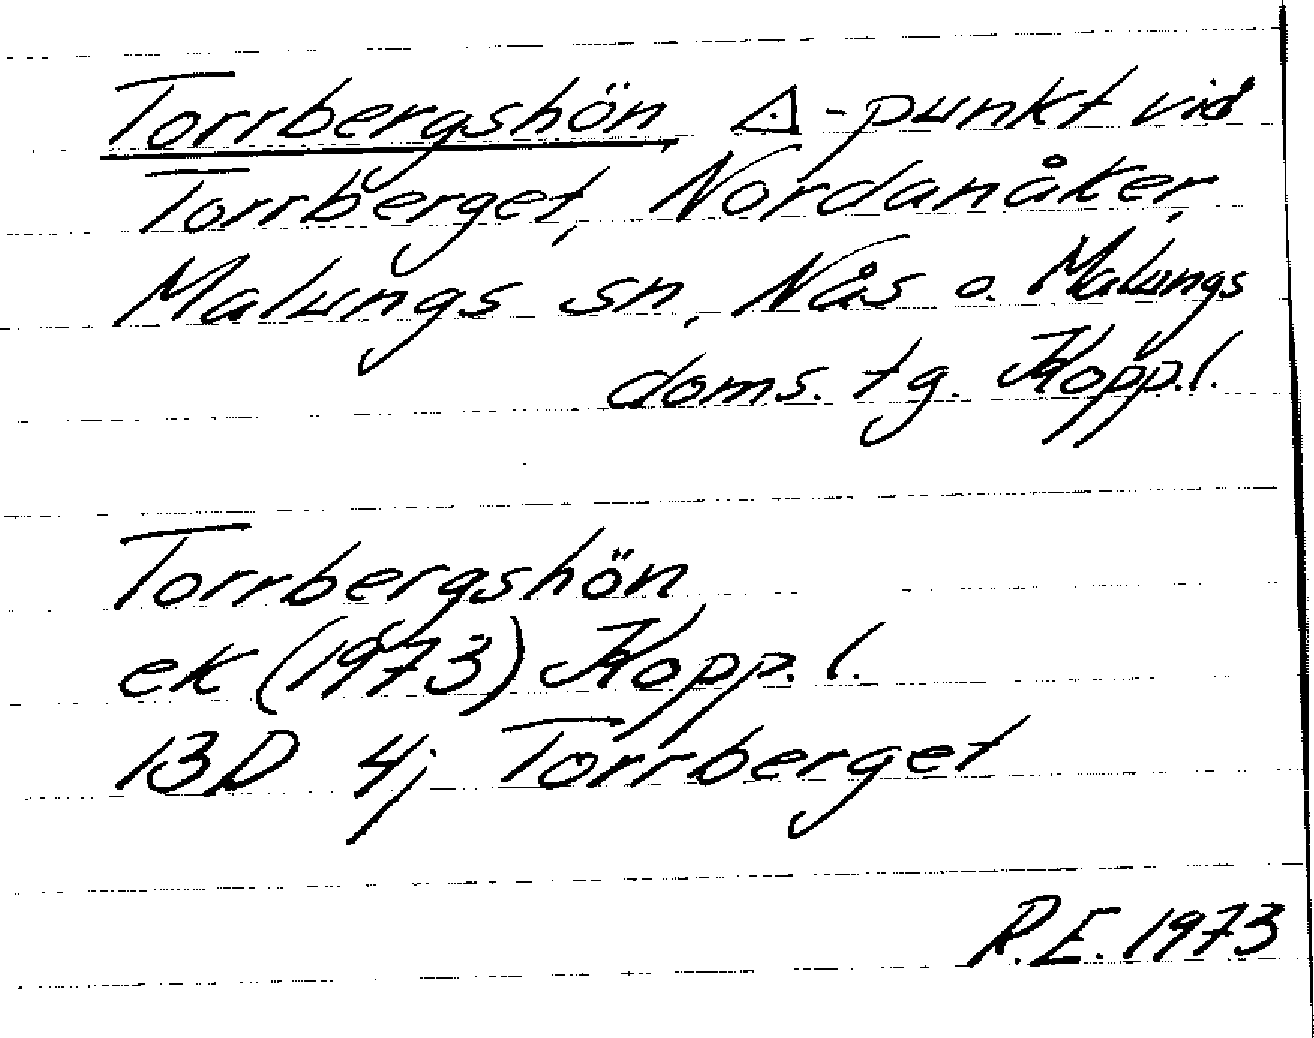 Torrbergshön, △-punkt vid
Torrberget, Nordanåker,
Malungs sn, Nås o. Malungs
doms. tg. Kopp.l.
Torrbergshön
ek (1973) Kopp. l.
13D 4j Torrberget
R.E. 1973